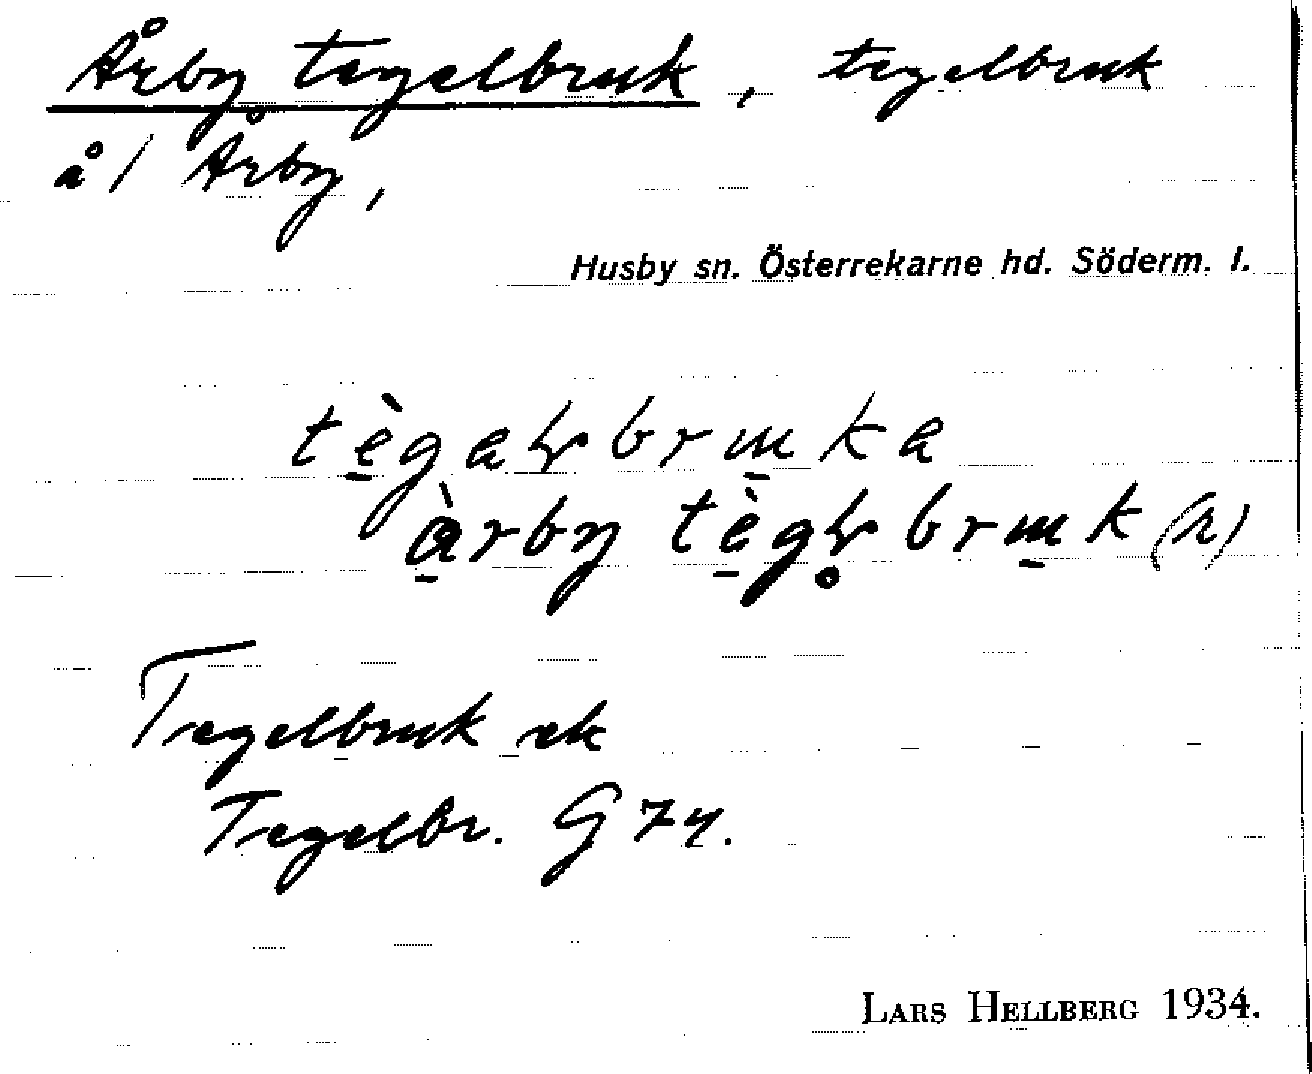 Årby tegelbruk, tegelbruk
å / Årby,
Husby sn. Österrekarne hd. Söderm. l.
Tegelbruk ek
Tegelbr. G 74.
LARS HELLBERG 1934.